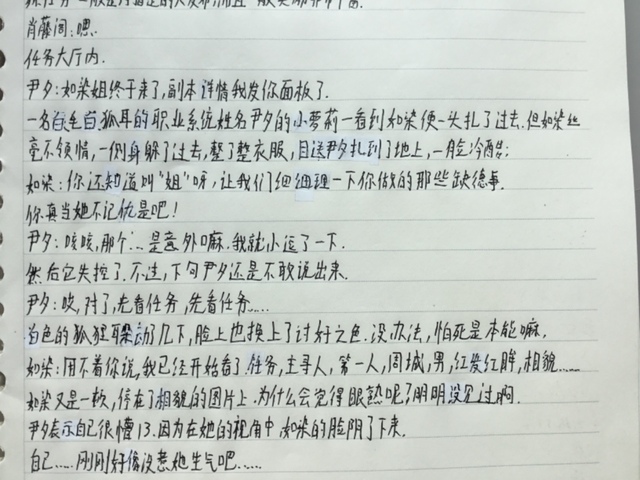 肖藤闫:嗯.
任务大厅内.
尹夕:如染姐终于来了,副本详情我发你面板了.
一名白毛白狐耳的职业系统姓名尹夕的小萝莉一看到如染便一头扎了过去.但如染丝
毫不领情,一侧身躲了过去,整了整衣服,目送尹夕扎到了地上,一脸冷酷:
如染:你还知道叫“姐”呀,让我们细细理一下你做的那些缺德事.
你真当她不记仇是吧!
尹夕:咳咳,那个….是意外嘛.我就小逗了一下.
然后它失控了.不过,下句尹夕还是不敢说出来.
尹夕:哎,对了,先看任务,先看任务…..
白色的狐狸耳朵动了几下,脸上也换上了讨好之色.没办法,怕死是本能嘛.
如染:用不着你说,我已经开始看了.任务,主寻人,第一人,周城,男,红发红眸,相貌……
如染又是一顿,停在了相貌的图片上.为什么会觉得眼熟呢?明明没见过啊.
尹夕表示自己很懵13.因为在她的视角中如染的脸阴了下来.
自己…..刚刚好像没惹她生气吧……